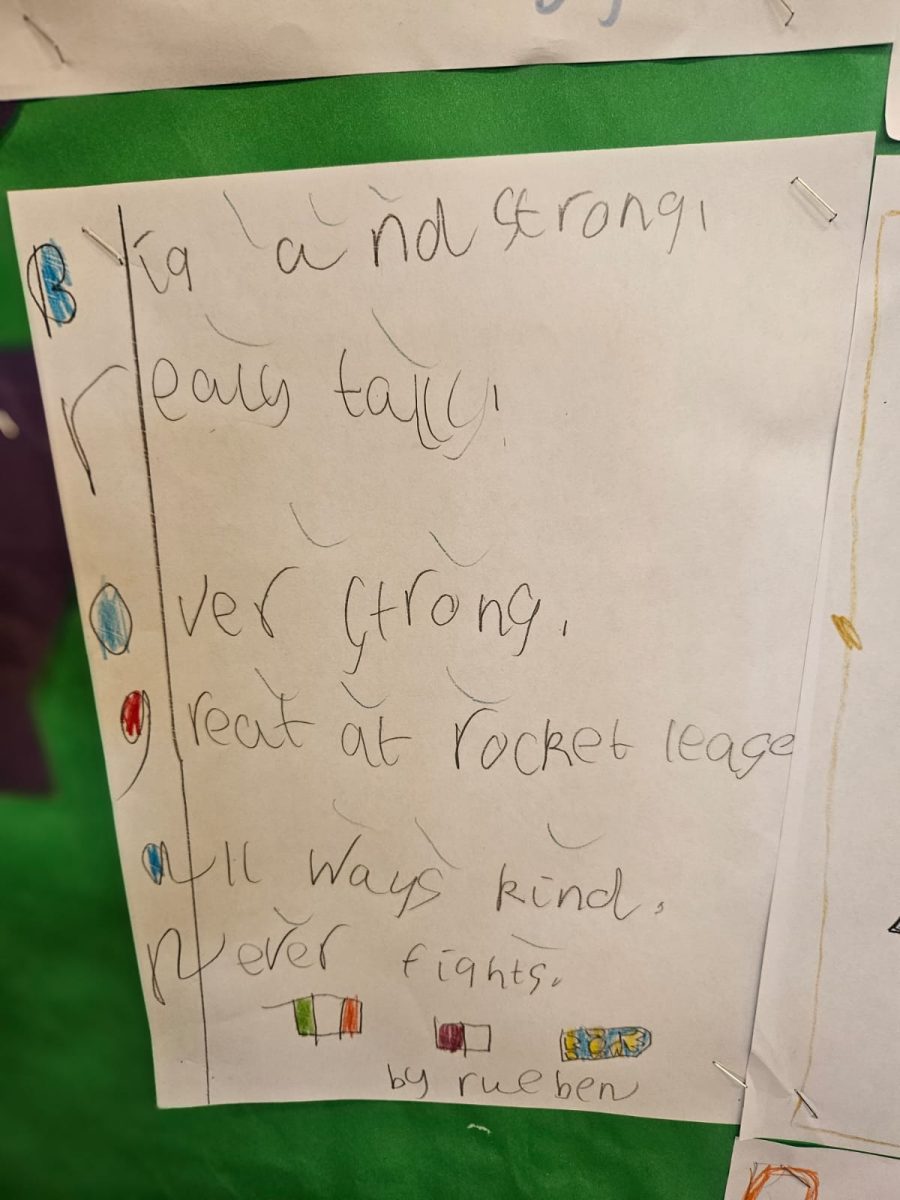 Big and strong,
realy tally,
over strong,
great at rocket leage
all ways kind,
never fights.
by rueben